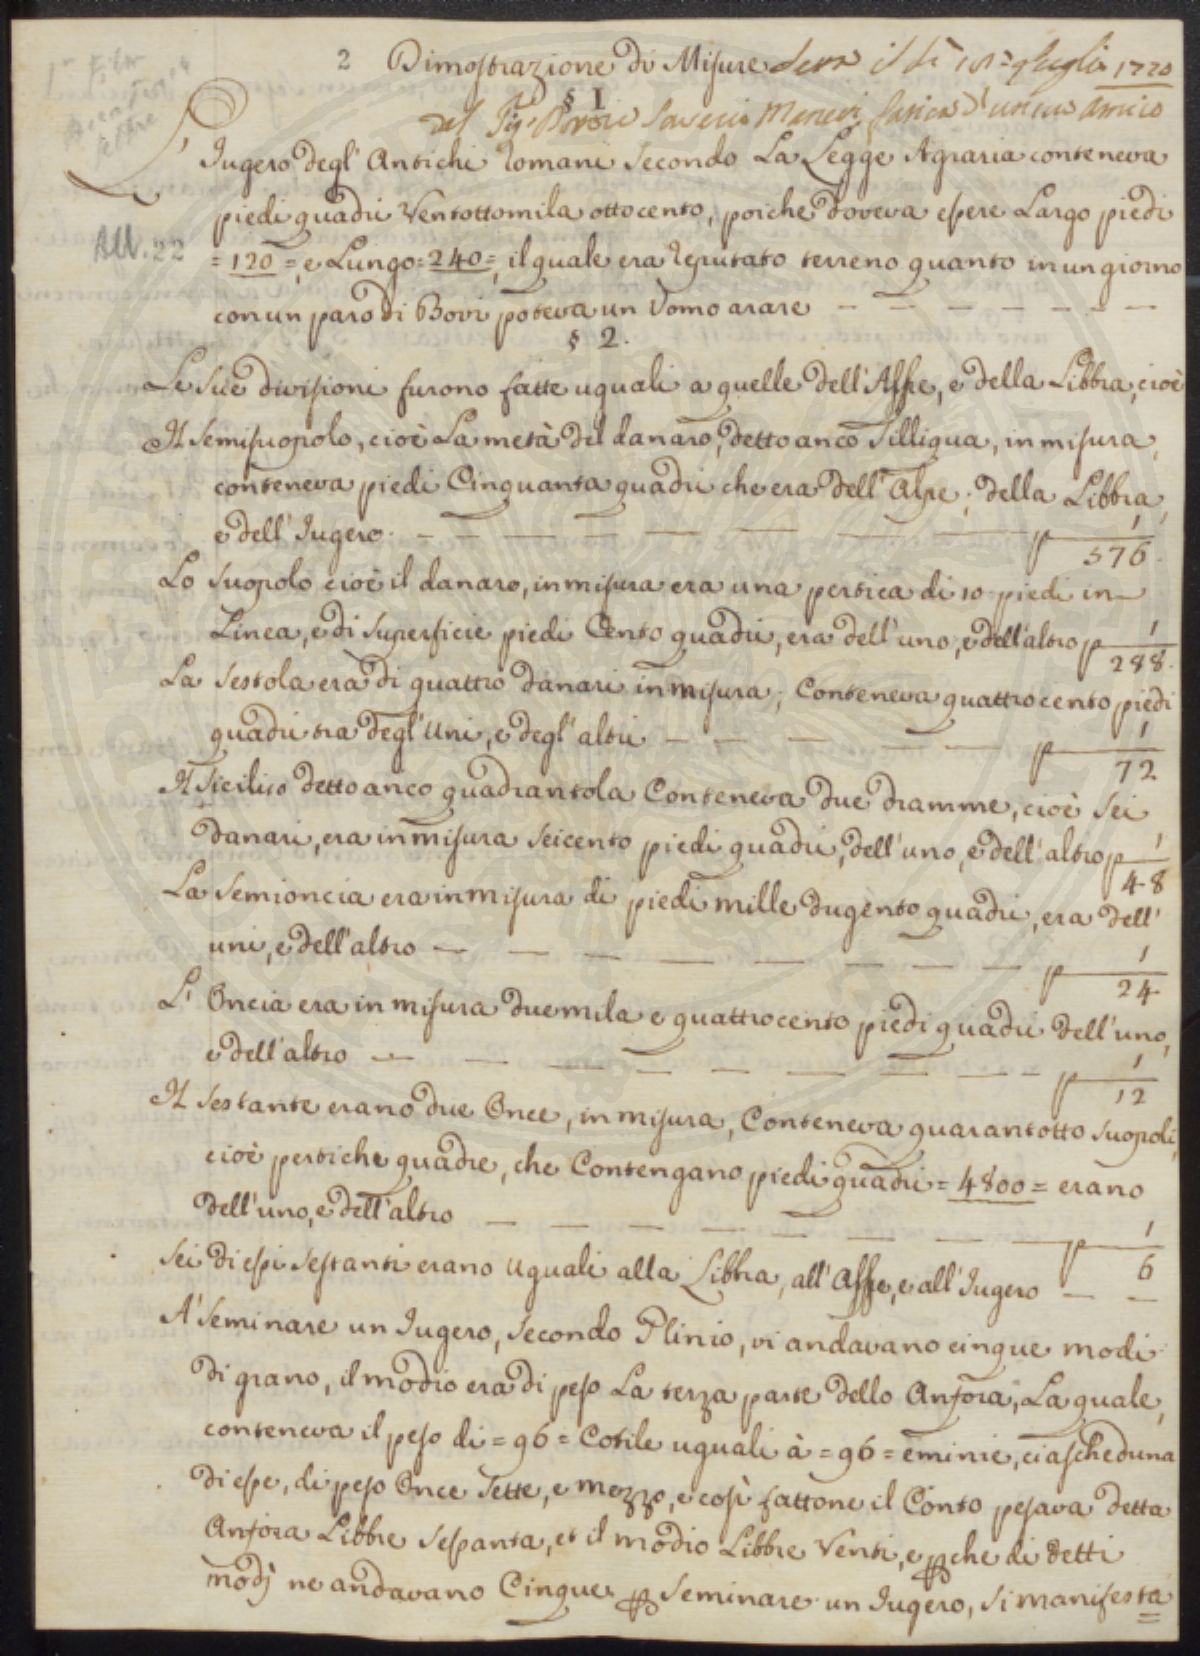 2 Dimostrazione di Misure
§ I
L' Jugero degl' Antichi Romani Secondo La Legge Agraria conteneva
piedi quadri Ventottomila ottocento, poiche doveva essere Largo piedi
All. 22
= 120 = e Lungo = 240 =, il quale era Reputato terreno quanto in un giorno
con un paro di Bovi poteva un Uomo arare — — — — — — —
§ 2.
Le Sue divisioni furono fatte uguali a quelle dell' Asse, e della Libbra, cioè
Il Semisuopolo, cioè La metà del danaro, detto anco Silliqua, in misura,
conteneva piedi Cinquanta quadri che era dell' Asse, della Libbra,
e dell' Jugero — — — — — — — — p 1/576.
Lo Suopolo cioè il danaro, in misura era una pertica di 10 piedi in
Linea, e di Superficie piedi Cento quadri, era dell' uno, e dell' altro p 1/288.
La Sestola era di quattro danari in misura, Conteneva quattrocento piedi
quadri tra degl' Uni, e degl' altri — — — — — p 1/72
Il Sicilico detto anco quadrantola Conteneva due dramme, cioè Sei
danari, era in misura Seicento piedi quadri, dell' uno, e dell' altro p 1/48
La Semioncia era in misura di piedi mille dugento quadri, era dell'
uni, e dell' altro — — — — — — — — p 1/24
L' Oncia era in misura duemila e quattrocento piedi quadri dell' uno,
e dell' altro — — — — — — — — p 1/12
Il Sestante erano due Once, in misura, Conteneva quarantotto Suopoli,
cioè pertiche quadre, che Contengano piedi quadri = 4800 = erano
dell' uno, e dell' altro — — — — — — — p 1/6
Sei di essi Sestanti erano uguali alla Libbra, all' Asse, e all' Jugero — —
A' Seminare un Jugero, Secondo Plinio, vi andavano cinque modi
di grano, il modio era di peso La terza parte dello Anfora, La quale,
conteneva il peso di = 96 = Cotile uguali à = 96 = eminie, ciascheduna
di esse, di peso Once Sette, e mezzo, e così fattone il Conto pesava detta
Anfora Libbre Sessanta, et il modio Libbre Venti, e p che di detti
modj ne andavano Cinque p Seminare un Jugero, Si manifesta